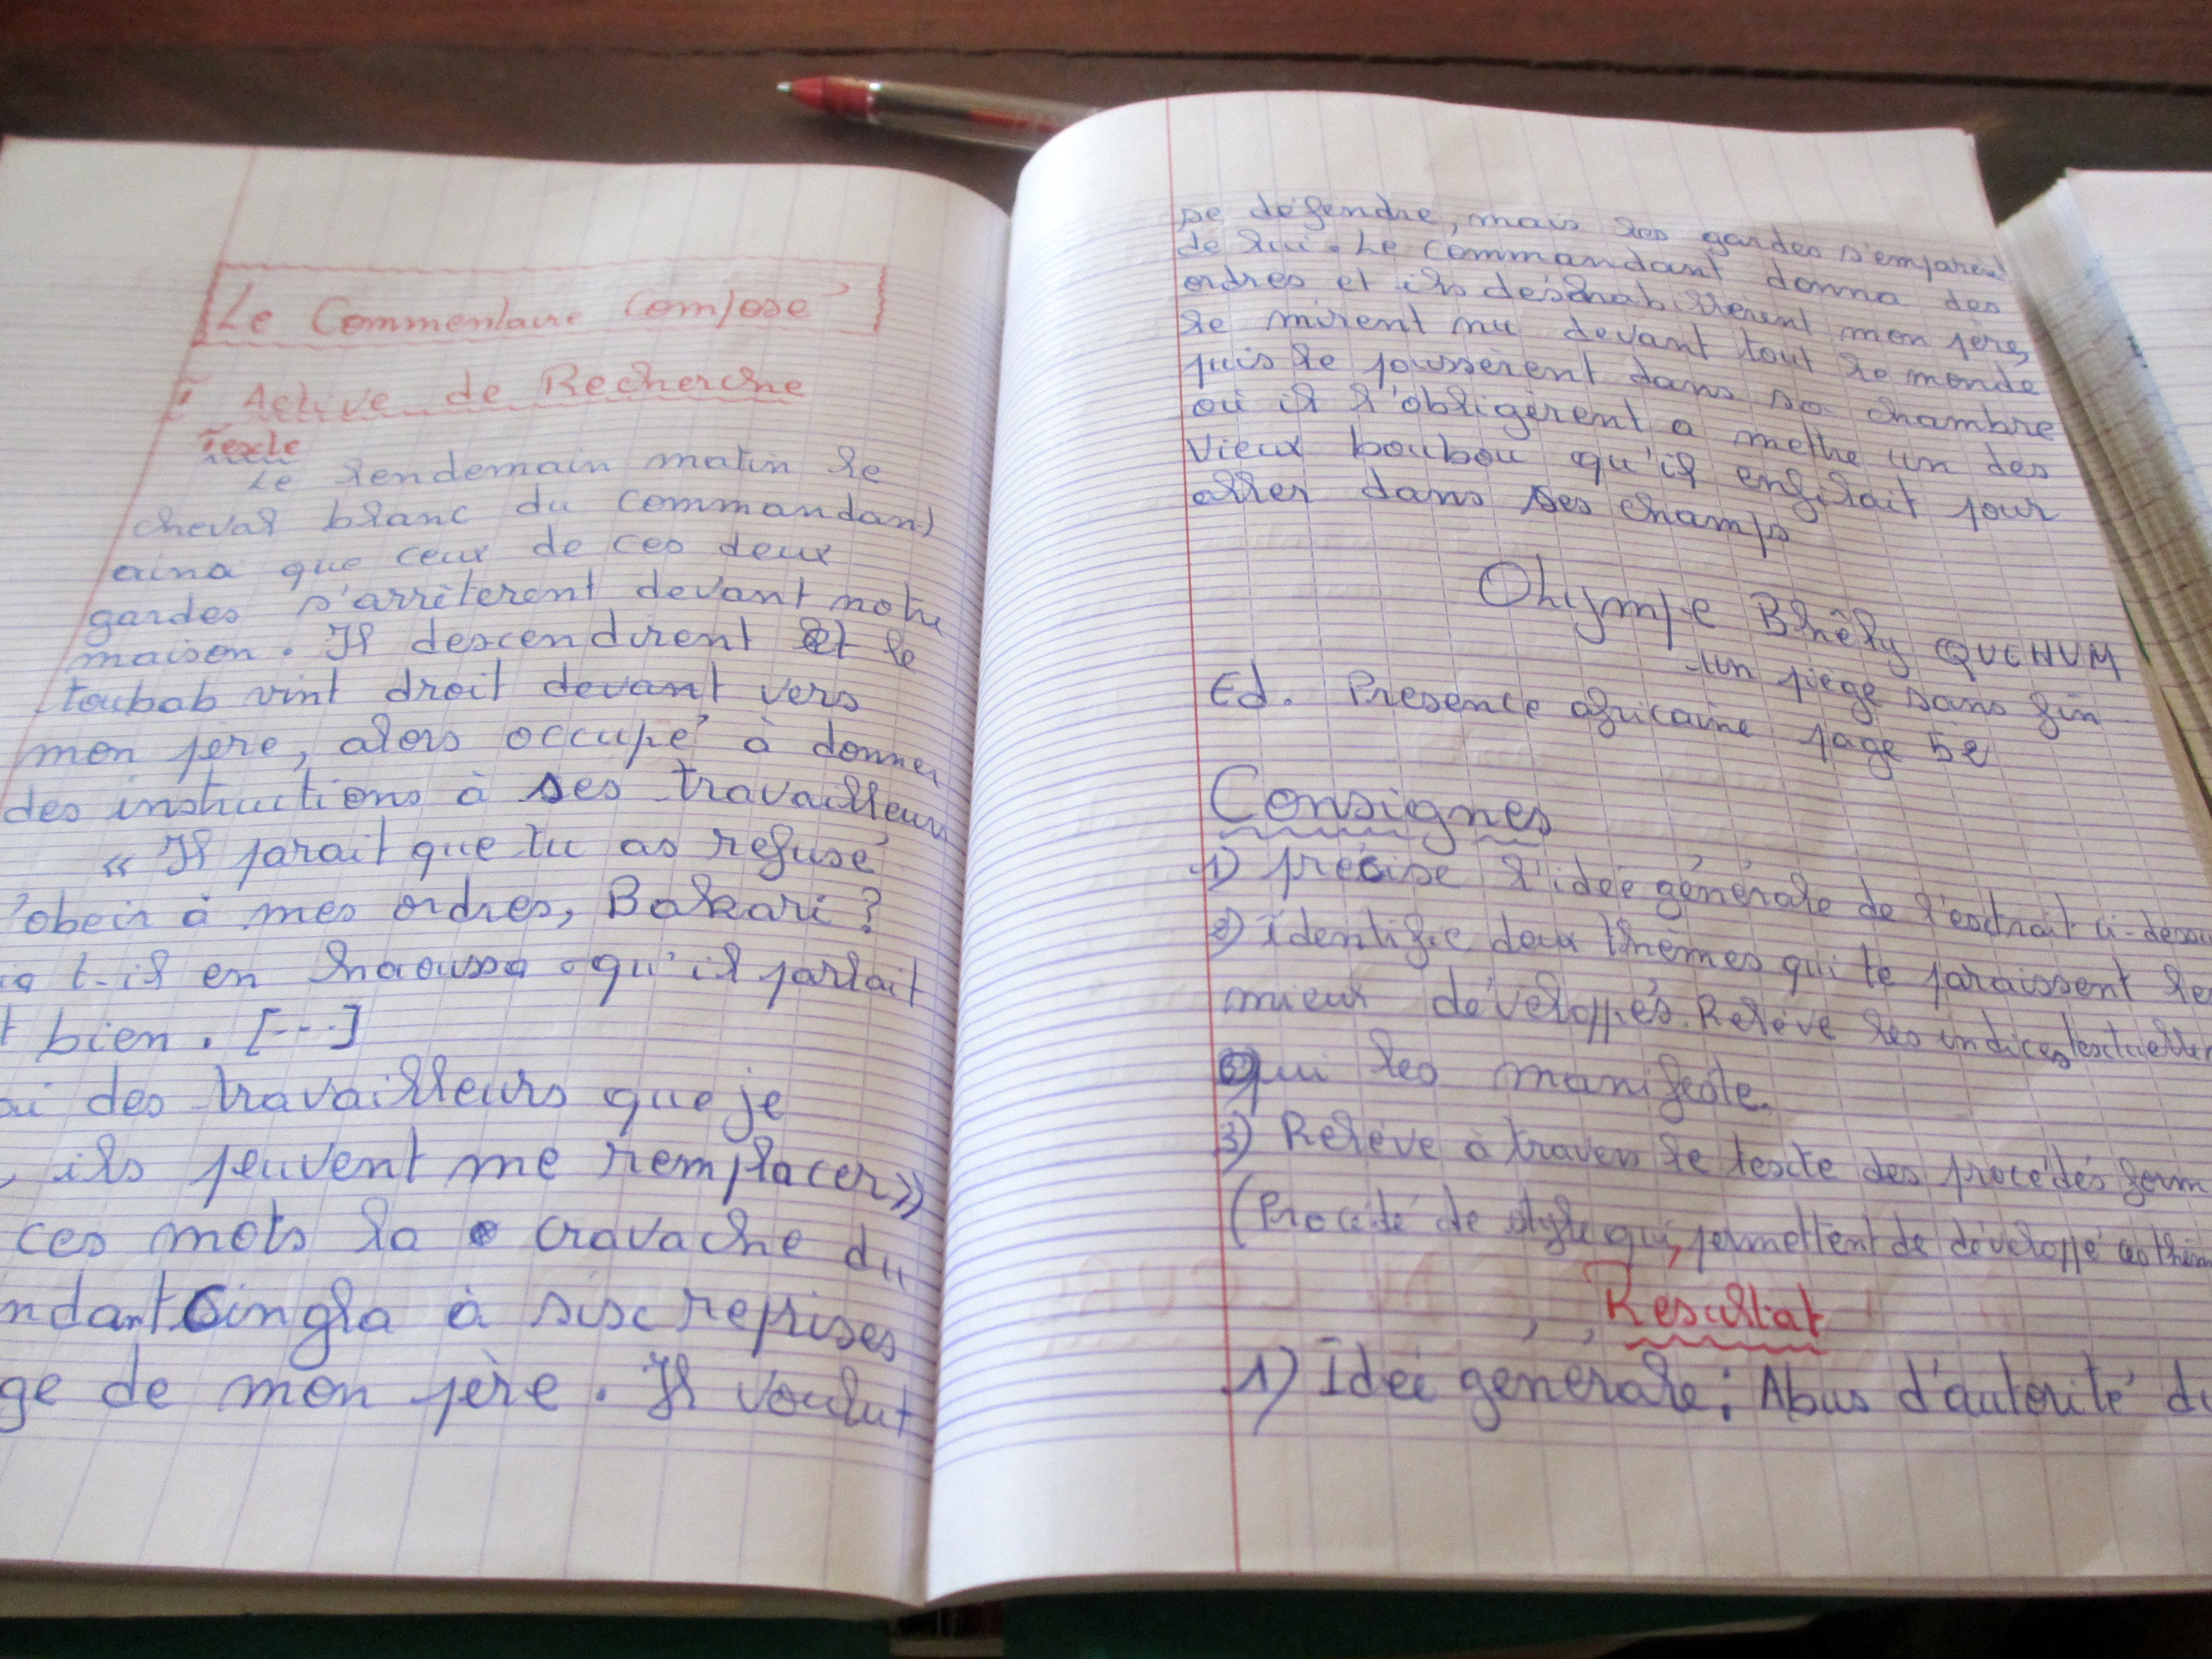 Le Commentaire Composé
I Active de Recherche
Texte
Le lendemain matin le
cheval blanc du commandant
ainsi que ceux de ces deux
gardes s'arrêterent devant notre
maison. Il descendirent et le
toubab vint droit devant vers
mon père, alors occupé à donner
des instructions à ses travailleurs
« Il parait que tu as refusé
'obeir à mes ordres, Bakari ?
ia t-il en haoussa qu'il parlait
t bien. [---]
ai des travailleurs que je
, ils peuvent me remplacer»
ces mots la cravache du
ndant Cingla à six reprises
ge de mon père. Il voulut
se défendre, mais les gardes s'emparent
de lui. Le Commandant donna des
ordres et ils déshabillèrent mon père,
le mirent nu devant tout le monde
puis le poussèrent dans sa chambre
où il l'obligèrent a mettre un des
Vieux boubou qu'il enfilait pour
aller dans ses champs
Olympe Bhêly QUENUM
Un piège sans fin
Ed. Presence africaine page 52
Consignes
1) précise l'idée générale de l'extrait ci-dessu
2) Identifie deux thèmes qui te paraissent le
mieux développés. Relève les indices textuelle
qui les manifeste.
3) Relève à travers le texte des procédés form
(Procédé de style qui permettent de développé ces thèm
Resultat
1) Ideé générale : Abus d'autorité du